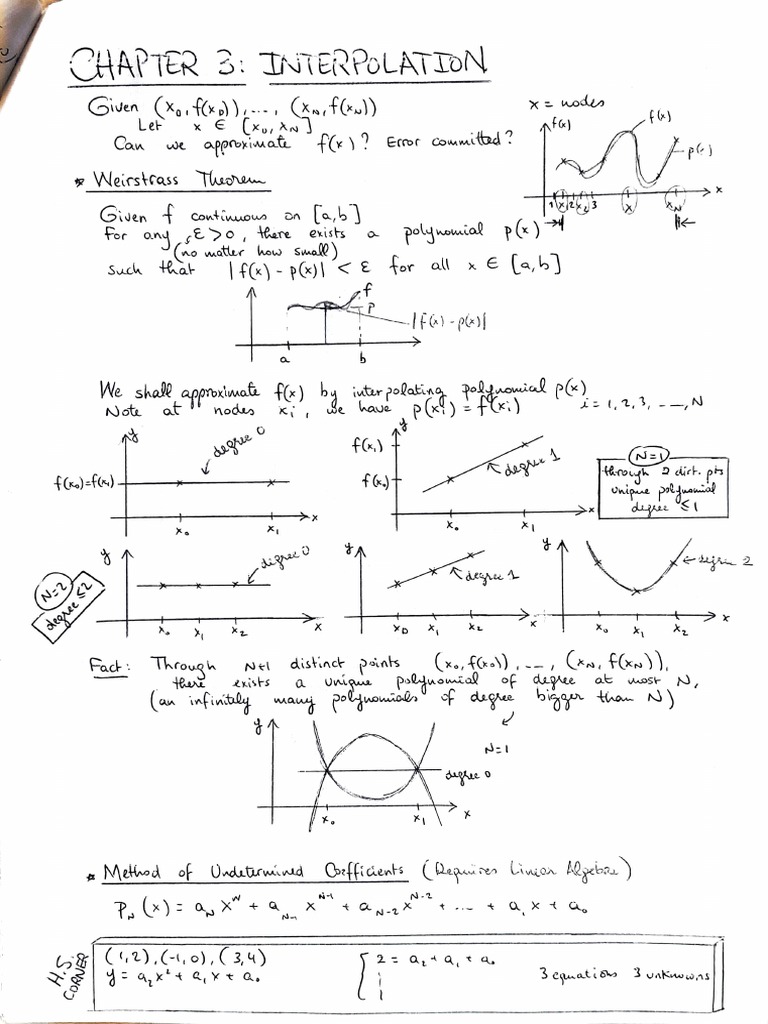 CHAPTER 3: INTERPOLATION
Given (x₀, f(x₀)), ..., (x_N, f(x_N))
Let x ∈ [x₀, x_N]
Can we approximate f(x)? Error committed?
x = nodes
f(x)
f(x)
p(x)
x
1 x₁ 2 x₂ 3 x x_N
* Weirstrass Theorem
Given f continuous on [a,b]
For any ε > 0, there exists a polynomial p(x)
(no matter how small)
such that |f(x) - p(x)| < ε for all x ∈ [a,b]
f
P
|f(x) - p(x)|
a b
We shall approximate f(x) by interpolating polynomial p(x)
Note at nodes xᵢ, we have p(xᵢ) = f(xᵢ) i = 1, 2, 3, ..., N
y
degree 0
f(x₀)=f(x₁)
x₀ x₁ x
y
f(x₁)
f(x₀)
degree 1
x₀ x₁ x
N=1
through 2 dist. pts
unique polynomial
degree ≤ 1
N=2
degree ≤ 2
y
degree 0
x₀ x₁ x₂ x
y
degree 1
x₀ x₁ x₂ x
y
degree 2
x₀ x₁ x₂ x
Fact: Through N+1 distinct points (x₀, f(x₀)), ..., (x_N, f(x_N)),
there exists a unique polynomial of degree at most N,
(an infinitely many polynomials of degree bigger than N)
y
N=1
degree 0
x₀ x₁ x
* Method of Undetermined Coefficients (Requires Linear Algebra)
P_N(x) = a_N x^N + a_{N-1} x^{N-1} + a_{N-2} x^{N-2} + ... + a₁x + a₀
H.S. CORNER
(1,2), (-1,0), (3,4)
y = a₂x² + a₁x + a₀
2 = a₂ + a₁ + a₀
3 equations 3 unknowns